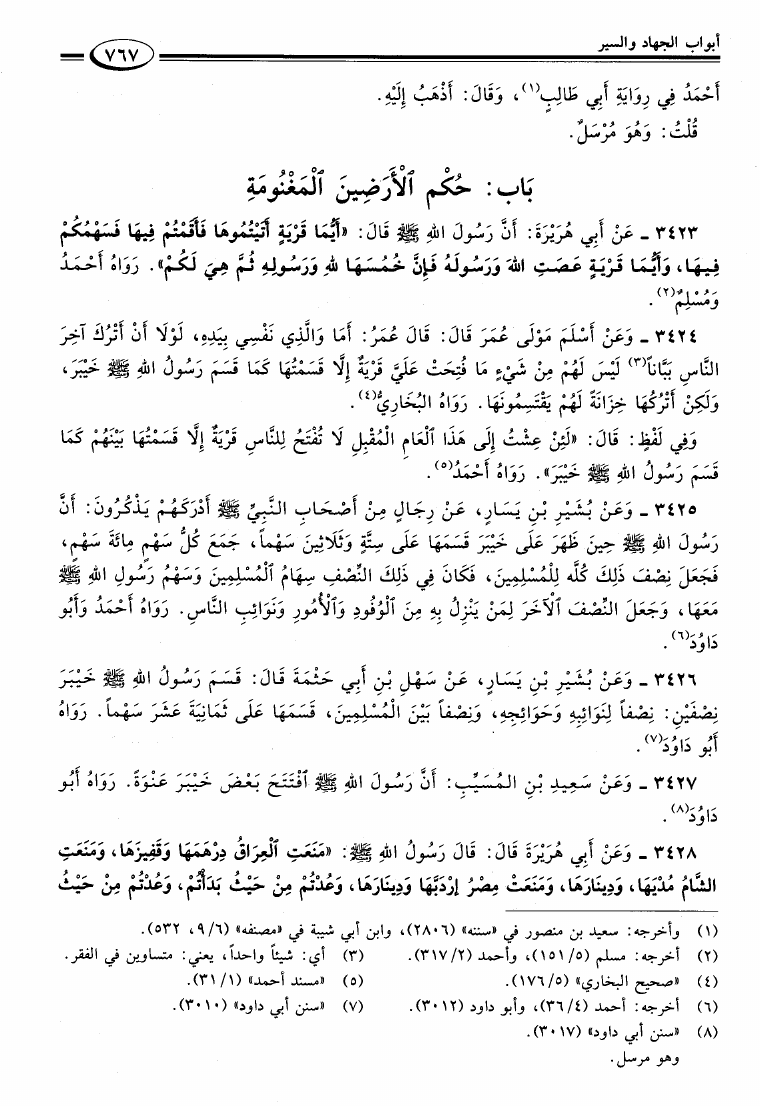 أبواب الجهاد والسير
٧٦٧
أَحْمَدُ فِي رِوَايَةِ أَبِي طَالِبٍ(١)، وَقَالَ: أَذْهَبُ إِلَيْهِ.
قُلْتُ: وَهُوَ مُرْسَلٌ.
بَاب: حُكْمِ ٱلْأَرَضِينَ ٱلْمَغْنُومَةِ
٣٤٢٣ ـ عَنْ أَبِي هُرَيْرَةَ: أَنَّ رَسُولَ اللهِ ﷺ قَالَ: «أَيُّمَا قَرْيَةٍ أَتَيْتُمُوهَا فَأَقَمْتُمْ فِيهَا فَسَهْمُكُمْ
فِيهَا، وَأَيُّمَا قَرْيَةٍ عَصَتِ اللهَ وَرَسُولَهُ فَإِنَّ خُمُسَهَا لِلهِ وَرَسُولِهِ ثُمَّ هِيَ لَكُمْ». رَوَاهُ أَحْمَدُ
وَمُسْلِمٌ(٢).
٣٤٢٤ ـ وَعَنْ أَسْلَمَ مَوْلَى عُمَرَ قَالَ: قَالَ عُمَرُ: أَمَا وَالَّذِي نَفْسِي بِيَدِهِ، لَوْلَا أَنْ أَتْرُكَ آخِرَ
النَّاسِ بَبَّاناً(٣) لَيْسَ لَهُمْ مِنْ شَيْءٍ مَا فُتِحَتْ عَلَيَّ قَرْيَةٌ إِلَّا قَسَمْتُهَا كَمَا قَسَمَ رَسُولُ اللهِ ﷺ خَيْبَرَ،
وَلَكِنْ أَتْرُكُهَا خِزَانَةً لَهُمْ يَقْتَسِمُونَهَا. رَوَاهُ البُخَارِيُّ(٤).
وَفِي لَفْظٍ: قَالَ: «لَئِنْ عِشْتُ إِلَى هَذَا ٱلْعَامِ الْمُقْبِلِ لَا تُفْتَحُ لِلنَّاسِ قَرْيَةٌ إِلَّا قَسَمْتُهَا بَيْنَهُمْ كَمَا
قَسَمَ رَسُولُ اللهِ ﷺ خَيْبَرَ». رَوَاهُ أَحْمَدُ(٥).
٣٤٢٥ ـ وَعَنْ بُشَيْرِ بْنِ يَسَارٍ، عَنْ رِجَالٍ مِنْ أَصْحَابِ النَّبِيِّ ﷺ أَدْرَكَهُمْ يَذْكُرُونَ: أَنَّ
رَسُولَ اللهِ ﷺ حِينَ ظَهَرَ عَلَى خَيْبَرَ قَسَمَهَا عَلَى سِتَّةٍ وَثَلَاثِينَ سَهْماً، جَمَعَ كُلُّ سَهْمٍ مِائَةَ سَهْمٍ،
فَجَعَلَ نِصْفَ ذَلِكَ كُلَّهُ لِلْمُسْلِمِينَ، فَكَانَ فِي ذَلِكَ النِّصْفِ سِهَامُ ٱلْمُسْلِمِينَ وَسَهْمُ رَسُولِ اللهِ ﷺ
مَعَهَا، وَجَعَلَ النِّصْفَ ٱلْآخَرَ لِمَنْ يَنْزِلُ بِهِ مِنَ ٱلْوُفُودِ وَٱلْأُمُورِ وَنَوَائِبِ النَّاسِ. رَوَاهُ أَحْمَدُ وَأَبُو
دَاوُدَ(٦).
٣٤٢٦ ـ وَعَنْ بُشَيْرِ بْنِ يَسَارٍ، عَنْ سَهْلِ بْنِ أَبِي حَثْمَةَ قَالَ: قَسَمَ رَسُولُ اللهِ ﷺ خَيْبَرَ
نِصْفَيْنِ: نِصْفاً لِنَوَائِبِهِ وَحَوَائِجِهِ، وَنِصْفاً بَيْنَ الْمُسْلِمِينَ، قَسَمَهَا عَلَى ثَمَانِيَةَ عَشَرَ سَهْماً. رَوَاهُ
أَبُو دَاوُدَ(٧).
٣٤٢٧ ـ وَعَنْ سَعِيدِ بْنِ المُسَيِّبِ: أَنَّ رَسُولَ اللهِ ﷺ ٱفْتَتَحَ بَعْضَ خَيْبَرَ عَنْوَةً. رَوَاهُ أَبُو
دَاوُدَ(٨).
٣٤٢٨ ـ وَعَنْ أَبِي هُرَيْرَةَ قَالَ: قَالَ رَسُولُ اللهِ ﷺ: «مَنَعَتِ ٱلْعِرَاقُ دِرْهَمَهَا وَقَفِيزَهَا، وَمَنَعَتِ
الشَّامُ مُدْيَهَا، وَدِينَارَهَا، وَمَنَعَتْ مِصْرُ إِرْدَبَّهَا وَدِينَارَهَا، وَعُدْتُمْ مِنْ حَيْثُ بَدَأْتُمْ، وَعُدْتُمْ مِنْ حَيْثُ
(١) وأخرجه: سعيد بن منصور في «سننه» (٢٨٠٦)، وابن أبي شيبة في «مصنفه» (٩/٦، ٥٣٢).
(٢) أخرجه: مسلم (١٥١/٥)، وأحمد (٣١٧/٢). (٣) أي: شيئاً واحداً، يعني: متساوين في الفقر.
(٤) «صحيح البخاري» (١٧٦/٥). (٥) «مسند أحمد» (٣١/١).
(٦) أخرجه: أحمد (٣٦/٤)، وأبو داود (٣٠١٢). (٧) «سنن أبي داود» (٣٠١٠).
(٨) «سنن أبي داود» (٣٠١٧).
وهو مرسل.